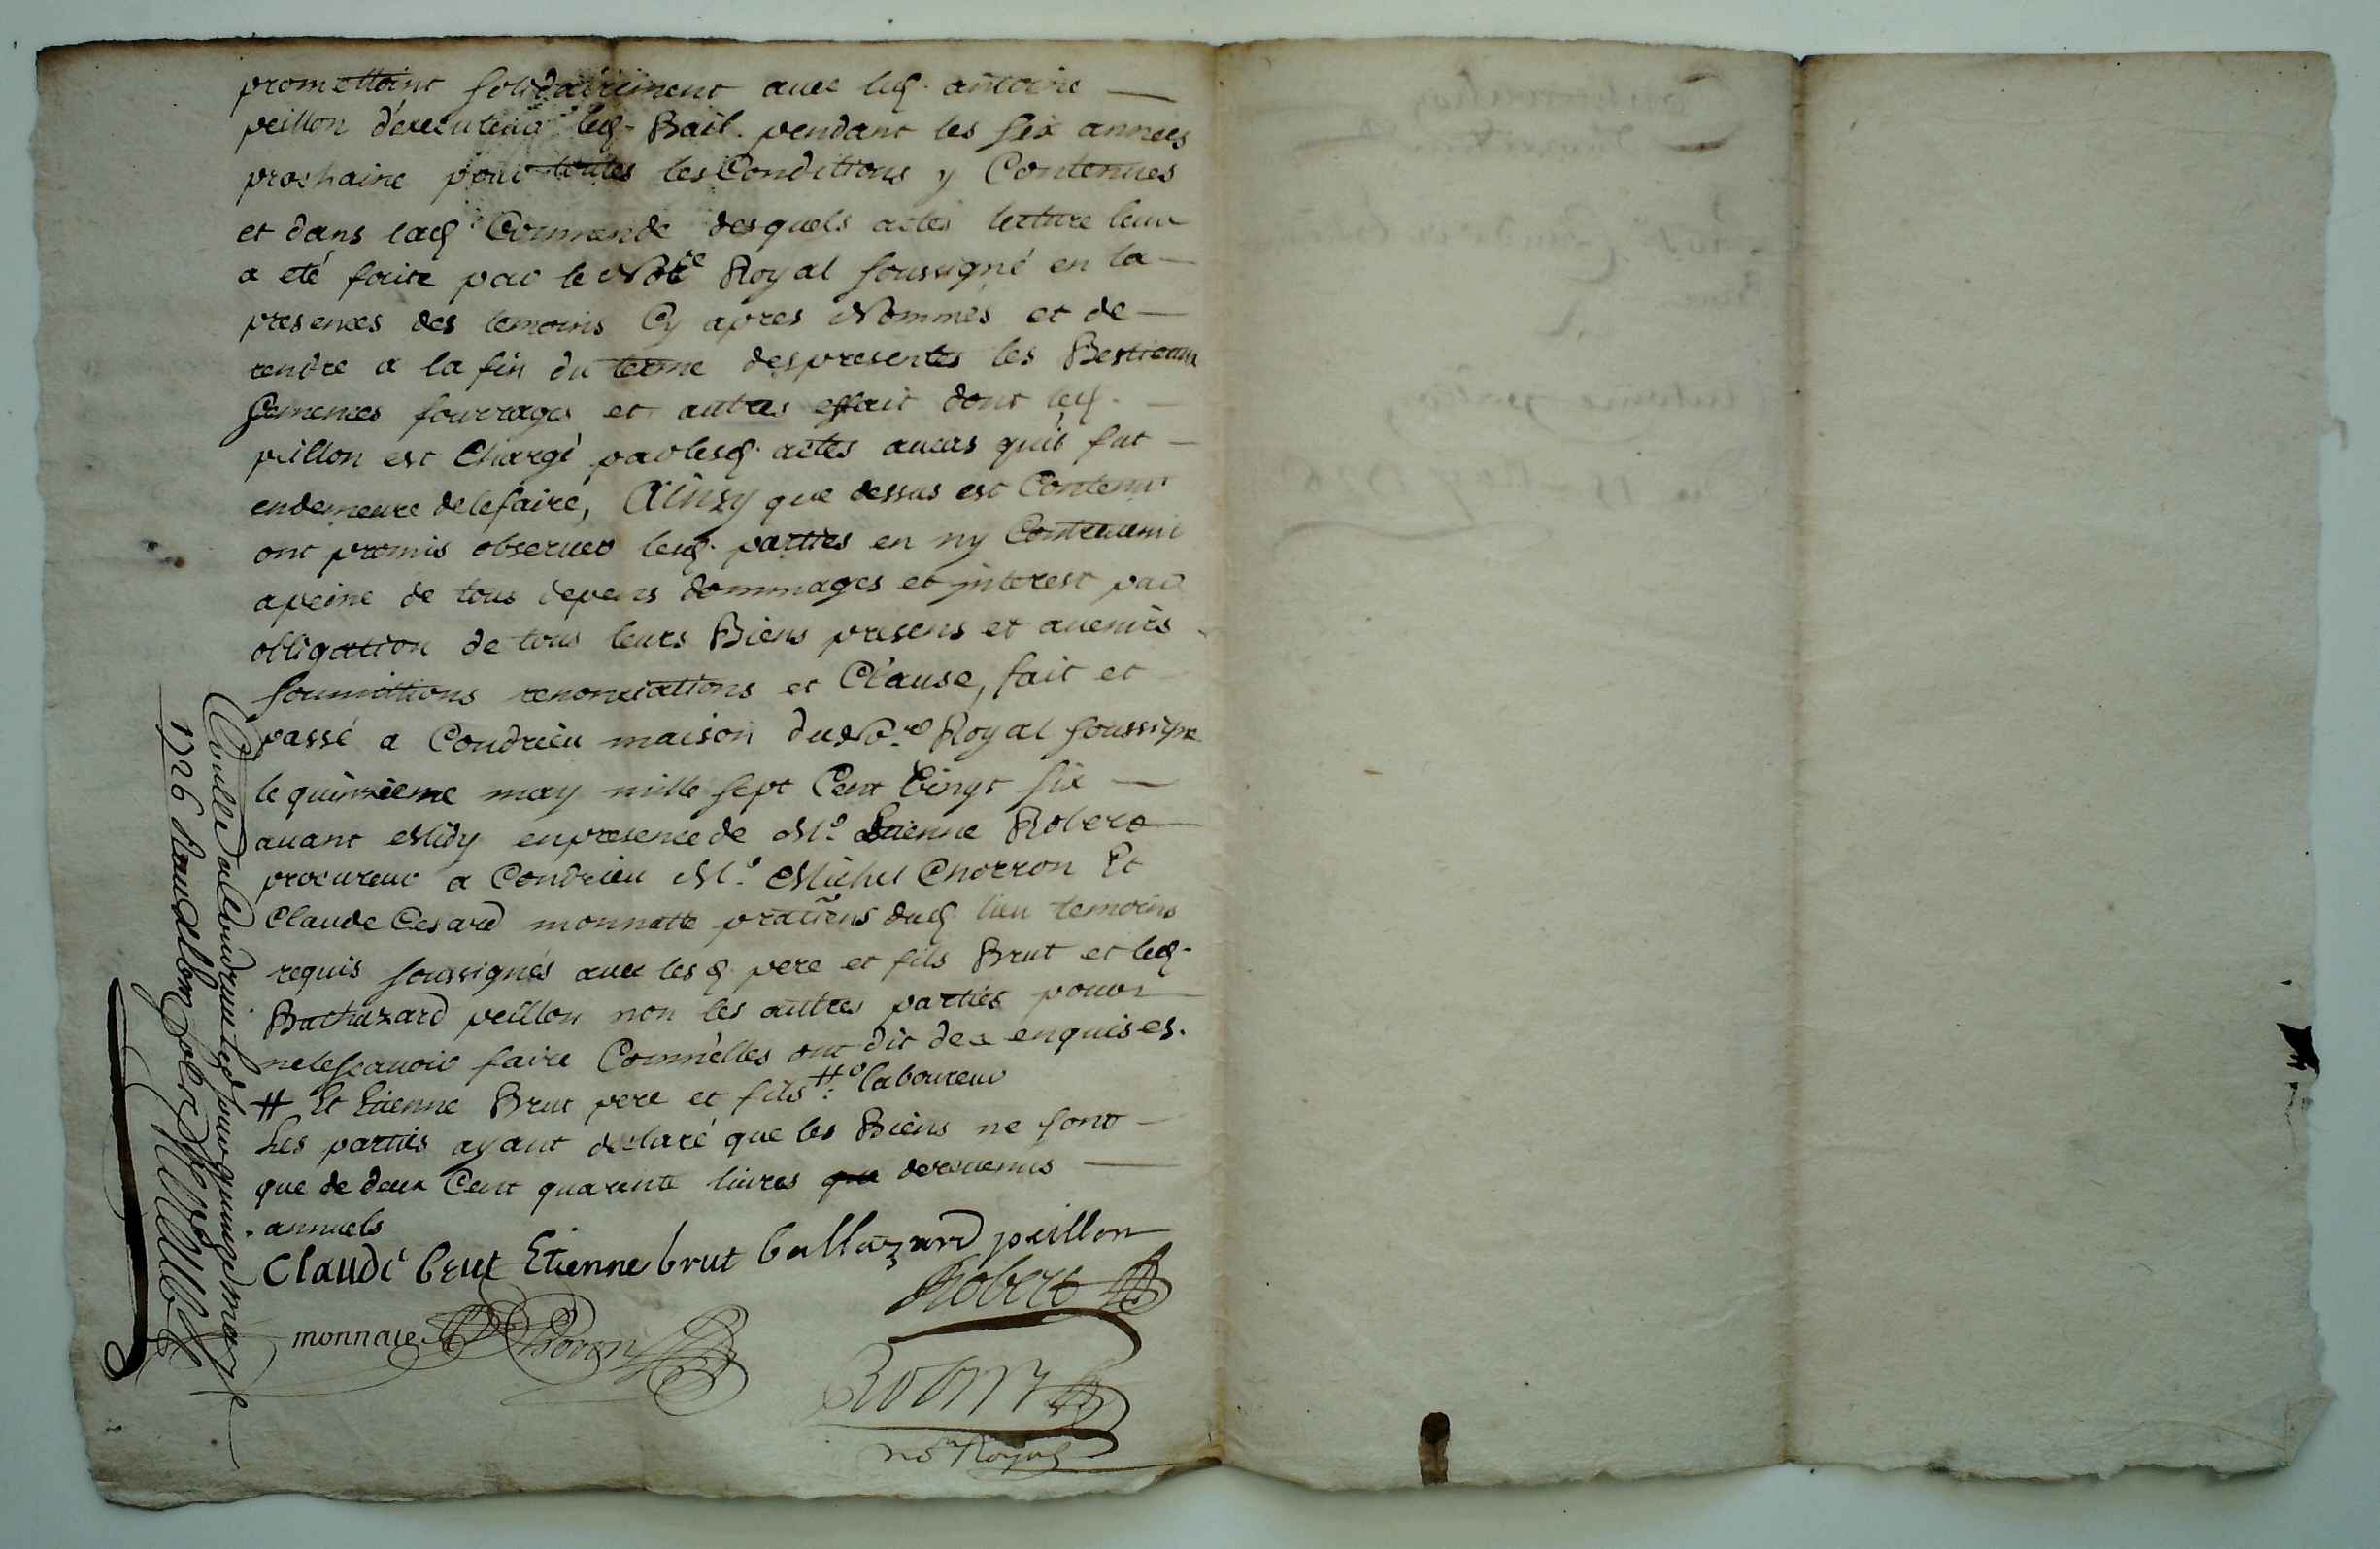 promettant solidairement avec led. antoine
peillon d'executer led. Bail pendant les six années
prochaine pour toutes les Conditions y Contenues
et dans lad. Commande desquels actes lecture leur
a eté faite par le No.re Royal soussigné en la
presences des temoins Cy apres Nommés et de
rendre a la fin du terme des presentes les Bestiaux
semences fourrages et autres effait dont led.
peillon est Chargé par lesd. actes aucas qu'il fut
en demeure de le faire, Ainsy que dessus est Contenu
ont promis observer lesd. parties en ny Contrevenir
a peine de tous depens dommages et interest par
obligation de tous leurs Biens presens et avenirs
soumittions renonciations et Clause, fait et
passé a Condrieu maison du No.re Royal soussigné
le quinzieme may mille sept Cent vingt six
avant Midy en presence de M.e Etienne Robert
procureur a Condrieu M.e Michel Chorron Et
Claude Cesard monnatte praticiens dud. lieu temoins
requis soussignés avec lesd. pere et fils Brut et led.
Bathazard peillon non les autres parties pour
ne le scavoir faire Comm'elles ont dit de ce enquises.
# Et Etienne Brut pere et fils #: laboureur
Les parties ayant declaré que les Biens ne sont
que de deux Cent quarante livres de revenus
annuels
Claude brut Etienne brut baltazard peillon
Robert
monnate Choron
No.re Royal
Controllé a Condrieu led. jour quinze may
1726